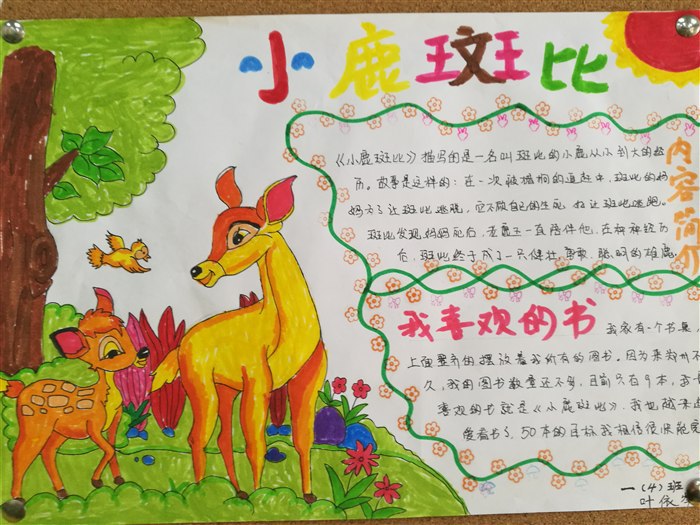 小鹿斑比
内容简介
《小鹿斑比》描写的是一名叫斑比的小鹿从小到大的经
历。故事是这样的：在一次被猎
斑比的妈
妈为了让斑比逃脱，它不顾自己的生死
让斑比逃跑。
斑比发现妈妈死后，老鹿王一直陪伴他，在
后，斑比终于成了一只健壮、勇敢、聪明的雄鹿
我喜欢的书
我家有一个书
上面整齐的摆放着我所有的图书。因为来郑州不
久，我的图书数量还不多，目前只有9本，
喜欢的书就是《小鹿斑比》。我也越来
爱看书了，50本的目标我相信很快能
一（4）班
叶依